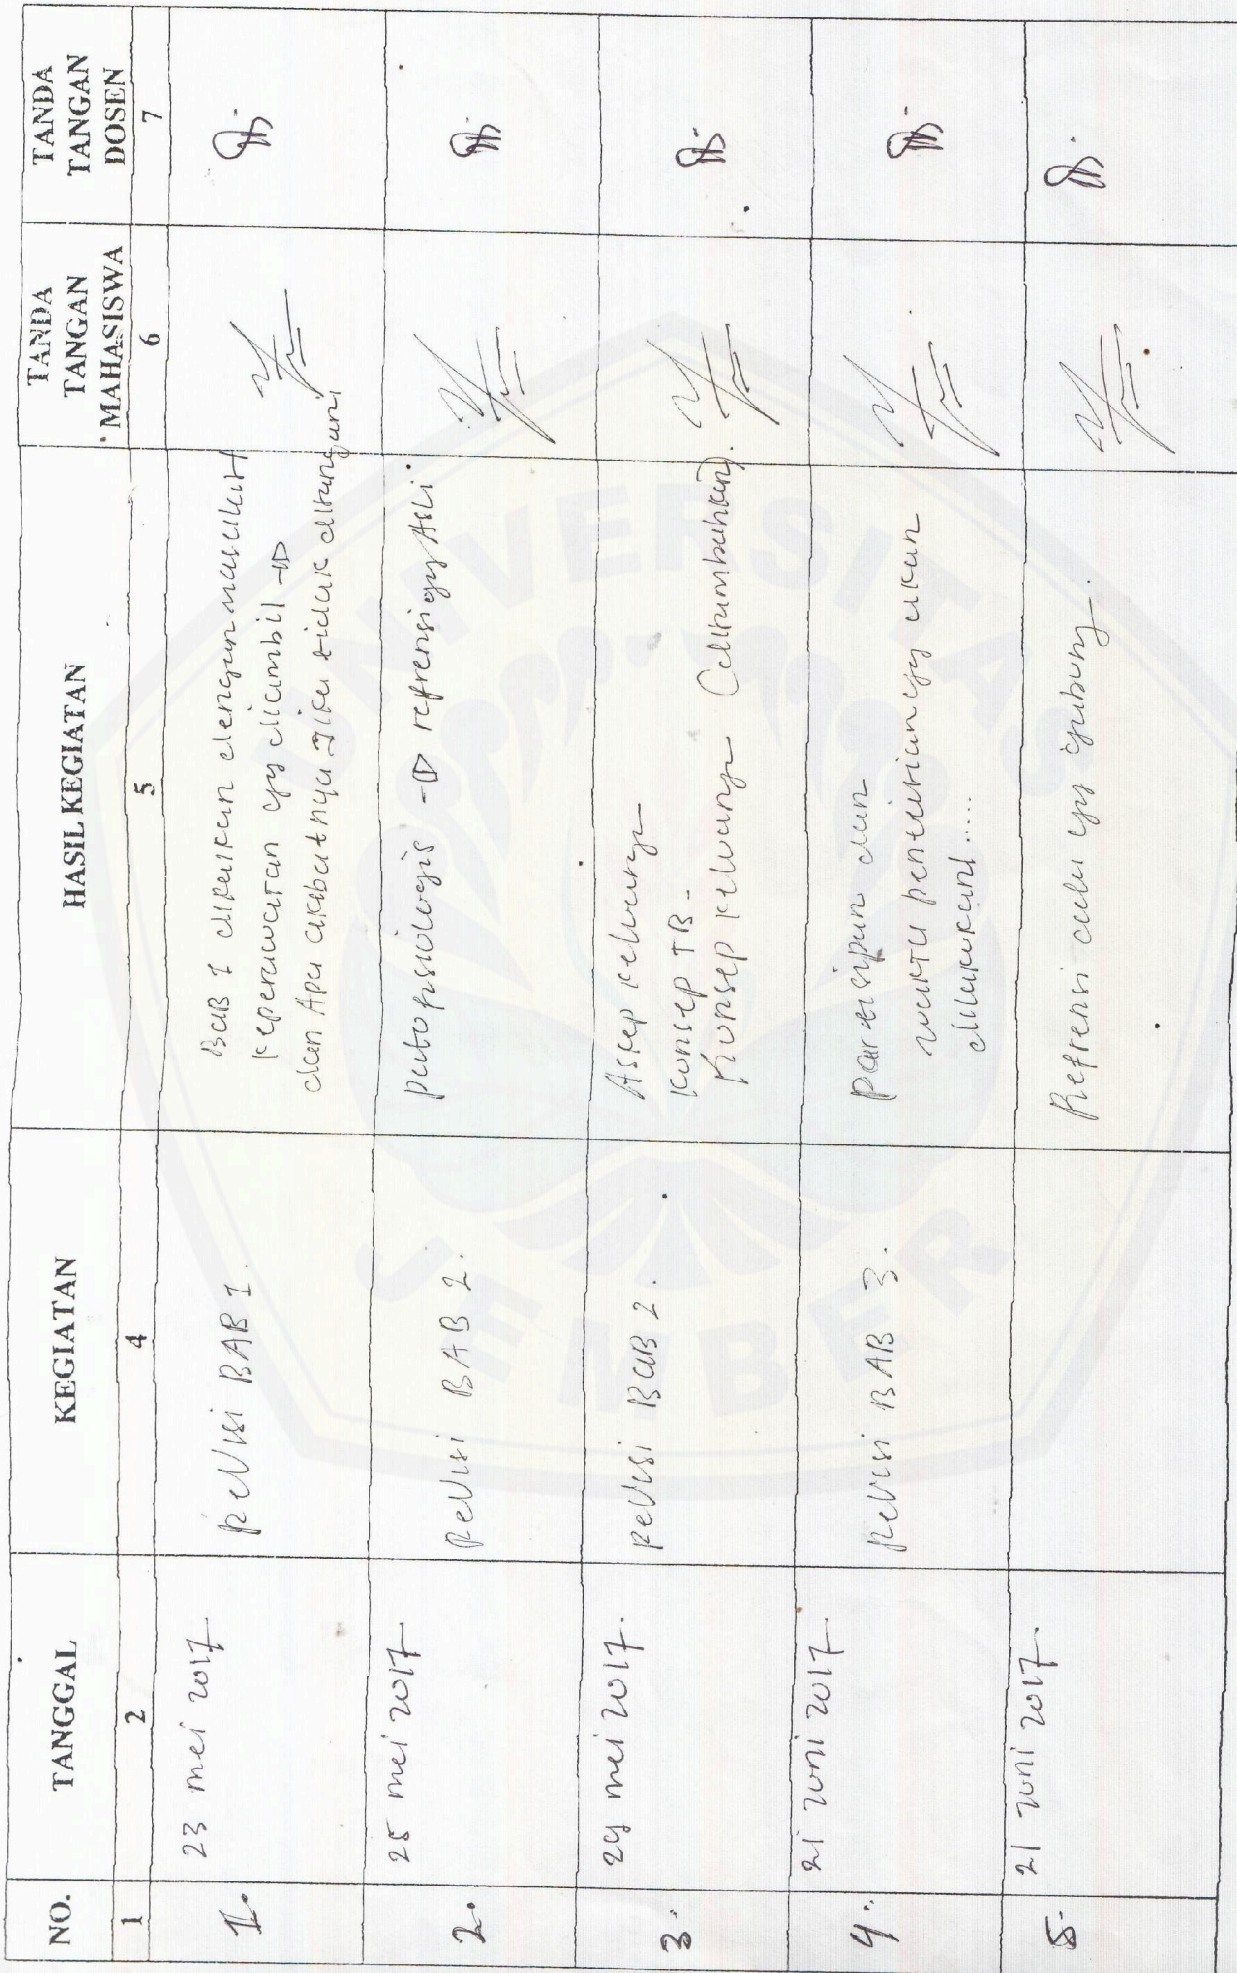 NO.
TANGGAL
KEGIATAN
HASIL KEGIATAN
TANDA
TANGAN
MAHASISWA
TANDA
TANGAN
DOSEN
1
2
4
5
6
7
1.
23 mei 2017
Revisi BAB 1.
BaB I dikaitkan dengan masalah
keperawatan yg diambil →
dan Apa akibatnya Jika tidak ditangani
2.
25 mei 2017
Revisi BAB 2.
patofisiologis → refrensi yg Asli
3.
29 mei 2017.
Revisi BaB 2.
Askep keluarga
Konsep TB -
Konsep keluarga (ditambahkan).
4.
21 Juni 2017
Revisi BAB 3.
partisipan dan
waktu penelitian yg akan
dilakukan .....
5.
21 Juni 2017.
Refrensi
UNIVERSITAS
JEMBER